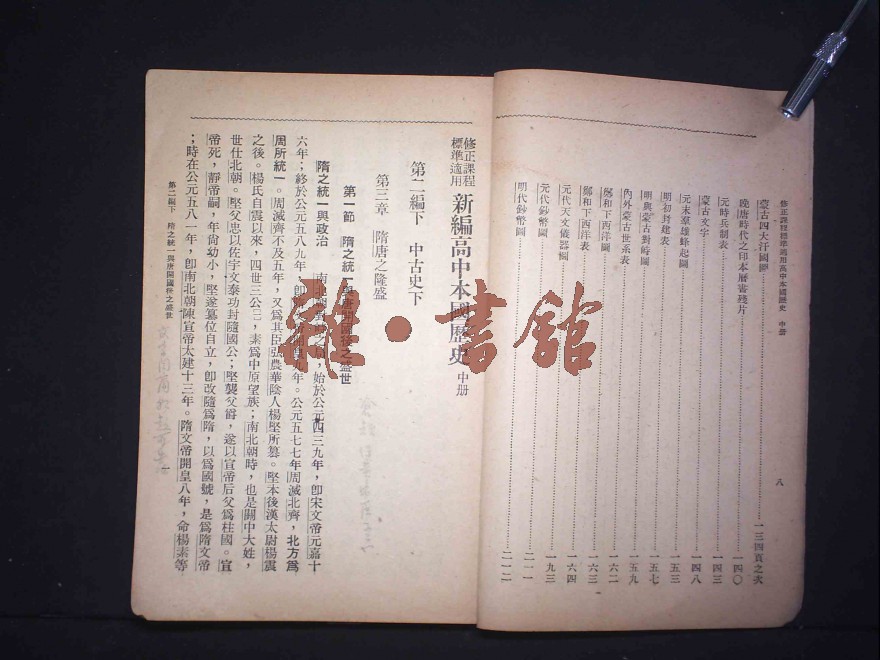 修正課程標準適用高中本國歷史 中册
八
蒙古四大汗國圖 一三四頁之次
晚唐時代之印本曆書殘片 一四〇
元時兵制表 一四三
蒙古文字 一四八
元末羣雄蜂起圖 一五三
明初封建表 一五七
明與蒙古對峙圖 一五九
內外蒙古世系表 一六二
鄭和下西洋圖 一六三
鄭和下西洋表 一六四
元代天文儀器圖 一九三
元代鈔幣圖 二一一
明代鈔幣圖 二一二
修正課程標準適用 新編高中本國歷史 中册
第二編下 中古史下
第三章 隋唐之隆盛
第一節 隋之統一與唐開國後之盛世
隋之統一與政治 南北朝對峙之局,始於公元四三九年,卽宋文帝元嘉十
六年;終於公元五八九年,卽隋文帝開皇九年。公元五七七年周滅北齊,北方爲
周所統一。周滅齊不及五年,又爲其臣弘農華陰人楊堅所篡。堅本後漢太尉楊震
之後。楊氏自震以來,四世三公,素爲中原望族;南北朝時,也是關中大姓,
世仕北朝。堅父忠以佐宇文泰功封隨國公;堅襲父爵,遂以宣帝后父爲柱國。宣
帝死,靜帝嗣,年尙幼小,堅遂篡位自立,卽改隨爲隋,以爲國號,是爲隋文帝
;時在公元五八一年,卽南北朝陳宣帝太建十三年。隋文帝開皇八年,命楊素等
第二編下 隋之統一與唐開國後之盛世
一
雜·書館